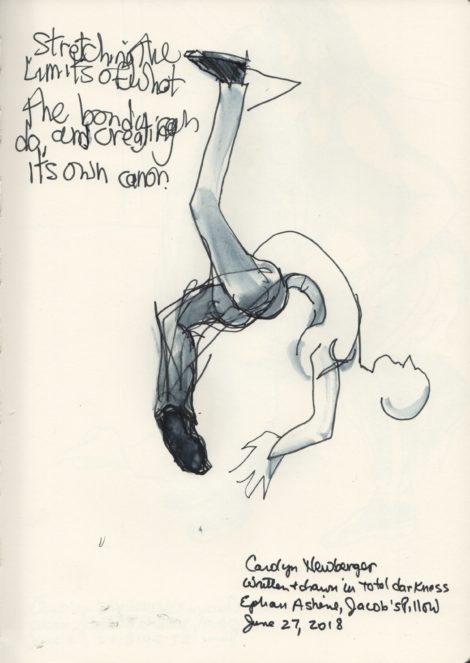 Stretching the
Limits of what
the bondy can
do, and creating
its own canon.
Carolyn Newberger
Written + drawn in total darkness
Ephrat Asherie, Jacob's Pillow
June 27, 2018